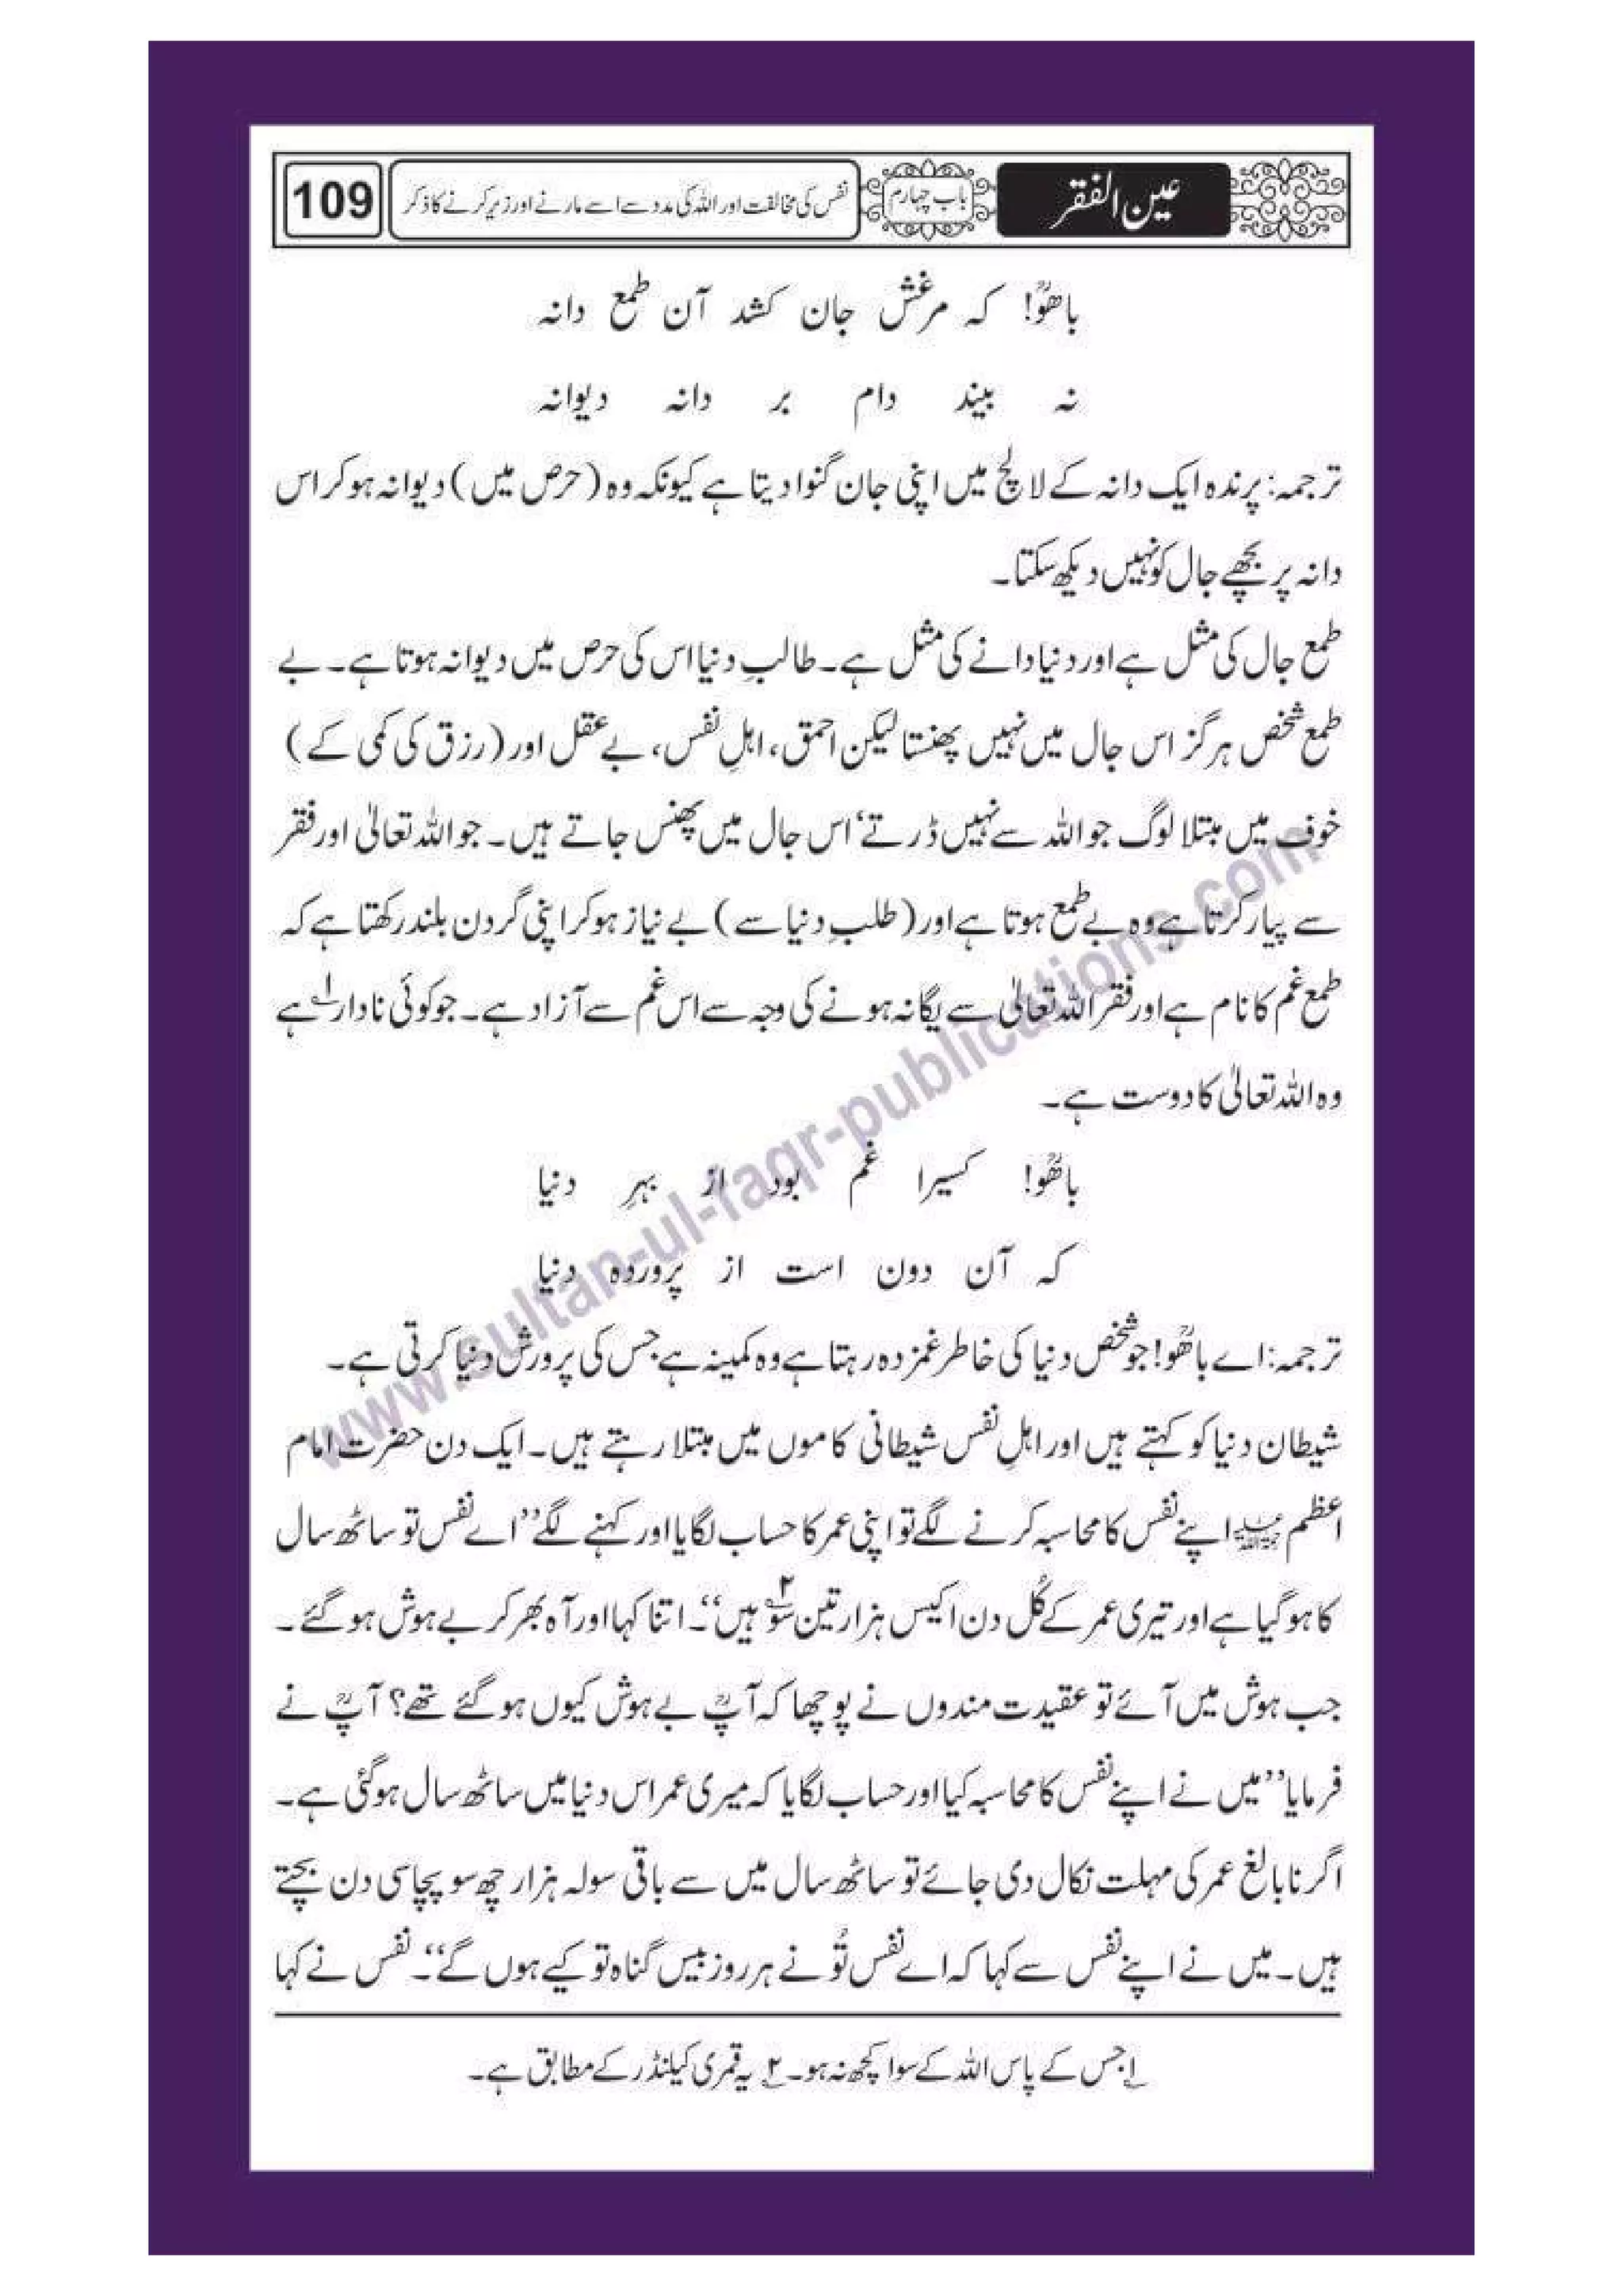 عین الفقر
باب چہارم
نفس کی مخالفت اور اللہ کی مدد سے اسے مارنے اور زیر کرنے کا ذکر
109
باھوؒ! کہ مرغش جان کشد آن طمع دانہ
نہ بیند دام بر دانہ دیوانہ
ترجمہ: پرندہ ایک دانہ کے لالچ میں اپنی جان گنوا دیتا ہے کیونکہ وہ (حرص میں) دیوانہ ہو کر اس
دانہ پر بچھے جال کو نہیں دیکھ سکتا۔
طمع جال کی مثل ہے اور دنیا دانے کی مثل ہے۔ طالبِ دنیا اس کی حرص میں دیوانہ ہوتا ہے۔ بے
طمع شخص ہرگز اس جال میں نہیں پھنستا لیکن احمق، اہلِ نفس، بے عقل اور (رزق کی کمی کے)
خوف میں مبتلا لوگ جو اللہ سے نہیں ڈرتے‘ اس جال میں پھنس جاتے ہیں۔ جو اللہ تعالیٰ اور فقر
سے پیار کرتا ہے وہ بے طمع ہوتا ہے اور (طلبِ دنیا سے) بے نیاز ہو کر اپنی گردن بلند رکھتا ہے کہ
طمع غم کا نام ہے اور فقر اللہ تعالیٰ سے یگانہ ہونے کی وجہ سے اس غم سے آزاد ہے۔ جو کوئی نادار۱؎ ہے
وہ اللہ تعالیٰ کا دوست ہے۔
باھُوؒ! کسیرا غم بود از بہرِ دنیا
کہ آن دون است از پروردہ دنیا
ترجمہ: اے باھُوؒ! جو شخص دنیا کی خاطر غمزدہ رہتا ہے وہ کمینہ ہے جس کی پرورش دنیا کرتی ہے۔
شیطان دنیا کو کہتے ہیں اور اہلِ نفس شیطانی کاموں میں مبتلا رہتے ہیں۔ ایک دن حضرت امام
اعظم رحمۃ اللہ علیہ اپنے نفس کا محاسبہ کرنے لگے تو اپنی عمر کا حساب لگایا اور کہنے لگے ’’اے نفس تو ساٹھ سال
کا ہو گیا ہے اور تیری عمر کے کُل دن اکیس ہزار تین سو۲؎ ہیں‘‘۔ اتنا کہا اور آہ بھر کر بے ہوش ہو گئے۔
جب ہوش میں آئے تو عقیدت مندوں نے پوچھا کہ آپؒ بے ہوش کیوں ہو گئے تھے؟ آپؒ نے
فرمایا ’’میں نے اپنے نفس کا محاسبہ کیا اور حساب لگایا کہ میری عمر اس دنیا میں ساٹھ سال ہو گئی ہے۔
اگر نابالغ عمر کی مہلت نکال دی جائے تو ساٹھ سال میں سے باقی سولہ ہزار چھ سو پچاسی دن بچتے
ہیں۔ میں نے اپنے نفس سے کہا کہ اے نفس تُو نے ہر روز بیس گناہ تو کیے ہوں گے‘‘۔ نفس نے کہا
۱؎ جس کے پاس اللہ کے سوا کچھ نہ ہو۔ ۲؎ یہ قمری کیلنڈر کے مطابق ہے۔
www.sultan-ul-faqr-publications.com